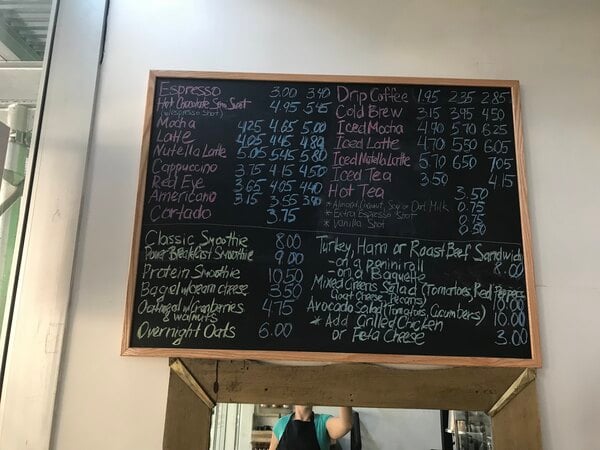 Espresso 3.00 3.40
Hot Chocolate Semi Sweet 4.95 5.45
(w/Espresso Shot)
Mocha 4.25 4.65 5.00
Latte 4.05 4.45 4.89
Nutella Latte 5.05 5.45 5.80
Cappuccino 3.75 4.15 4.50
Red Eye 3.65 4.05 4.40
Americano 3.15 3.55 3.90
Cortado 3.75
Drip Coffee 1.95 2.35 2.85
Cold Brew 3.15 3.95 4.50
Iced Mocha 4.90 5.70 6.25
Iced Latte 4.70 5.50 6.05
Iced Nutella Latte 5.70 6.50 7.05
Iced Tea 3.50 4.15
Hot Tea 3.50
* Almond, Coconut, Soy or Oat Milk 0.75
* Extra Espresso Shot 0.75
* Vanilla Shot 0.50
Classic Smoothie 8.00
Power Breakfast Smoothie 9.00
Protein Smoothie 10.50
Bagel w/cream cheese 3.50
Oatmeal w/Cranberries 4.75
& walnuts
Overnight Oats 6.00
Turkey, Ham or Roast Beef Sandwich
-on a panini roll 8.00
-on a Baguette
Mixed Greens Salad (Tomatoes, Red Peppers
Goat Cheese, Pecans) 10.00
Avocado Salad (Tomatoes, Cucumbers) 10.00
* Add Grilled Chicken
or Feta Cheese 3.00